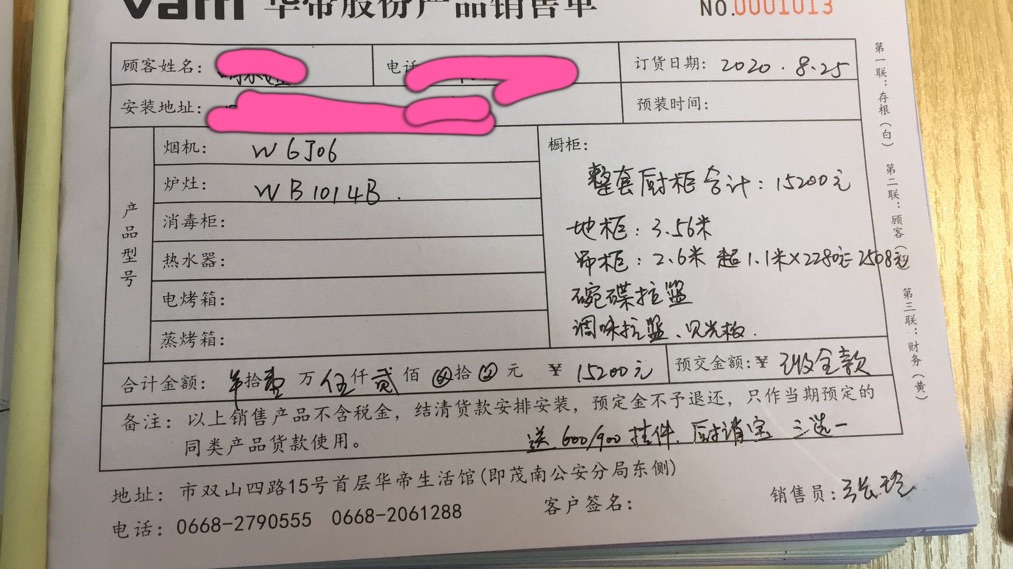 Vatti 华帝股份产品销售单 NO.0001013
顾客姓名: 电话 订货日期: 2020.8.25
安装地址: 预装时间:
产品型号
烟机: W6J06
炉灶: WB1014B.
消毒柜:
热水器:
电烤箱:
蒸烤箱:
橱柜:
整套厨柜合计: 15200元
地柜: 3.56米
吊柜: 2.6米 超1.1米×2280元 2508元
碗碟拉篮
调味拉篮、见光板.
合计金额: 拾壹万伍仟贰佰 拾 元 ¥ 15200元 预交金额:¥ 已收全款
备注: 以上销售产品不含税金，结清货款安排安装，预定金不予退还，只作当期预定的
同类产品货款使用。
送600/900挂件. 厨清宝 三选一
地址: 市双山四路15号首层华帝生活馆(即茂南公安分局东侧)
电话: 0668-2790555 0668-2061288 客户签名: 销售员:
第一联:存根(白) 第二联:顾客( 第三联:财务(黄)